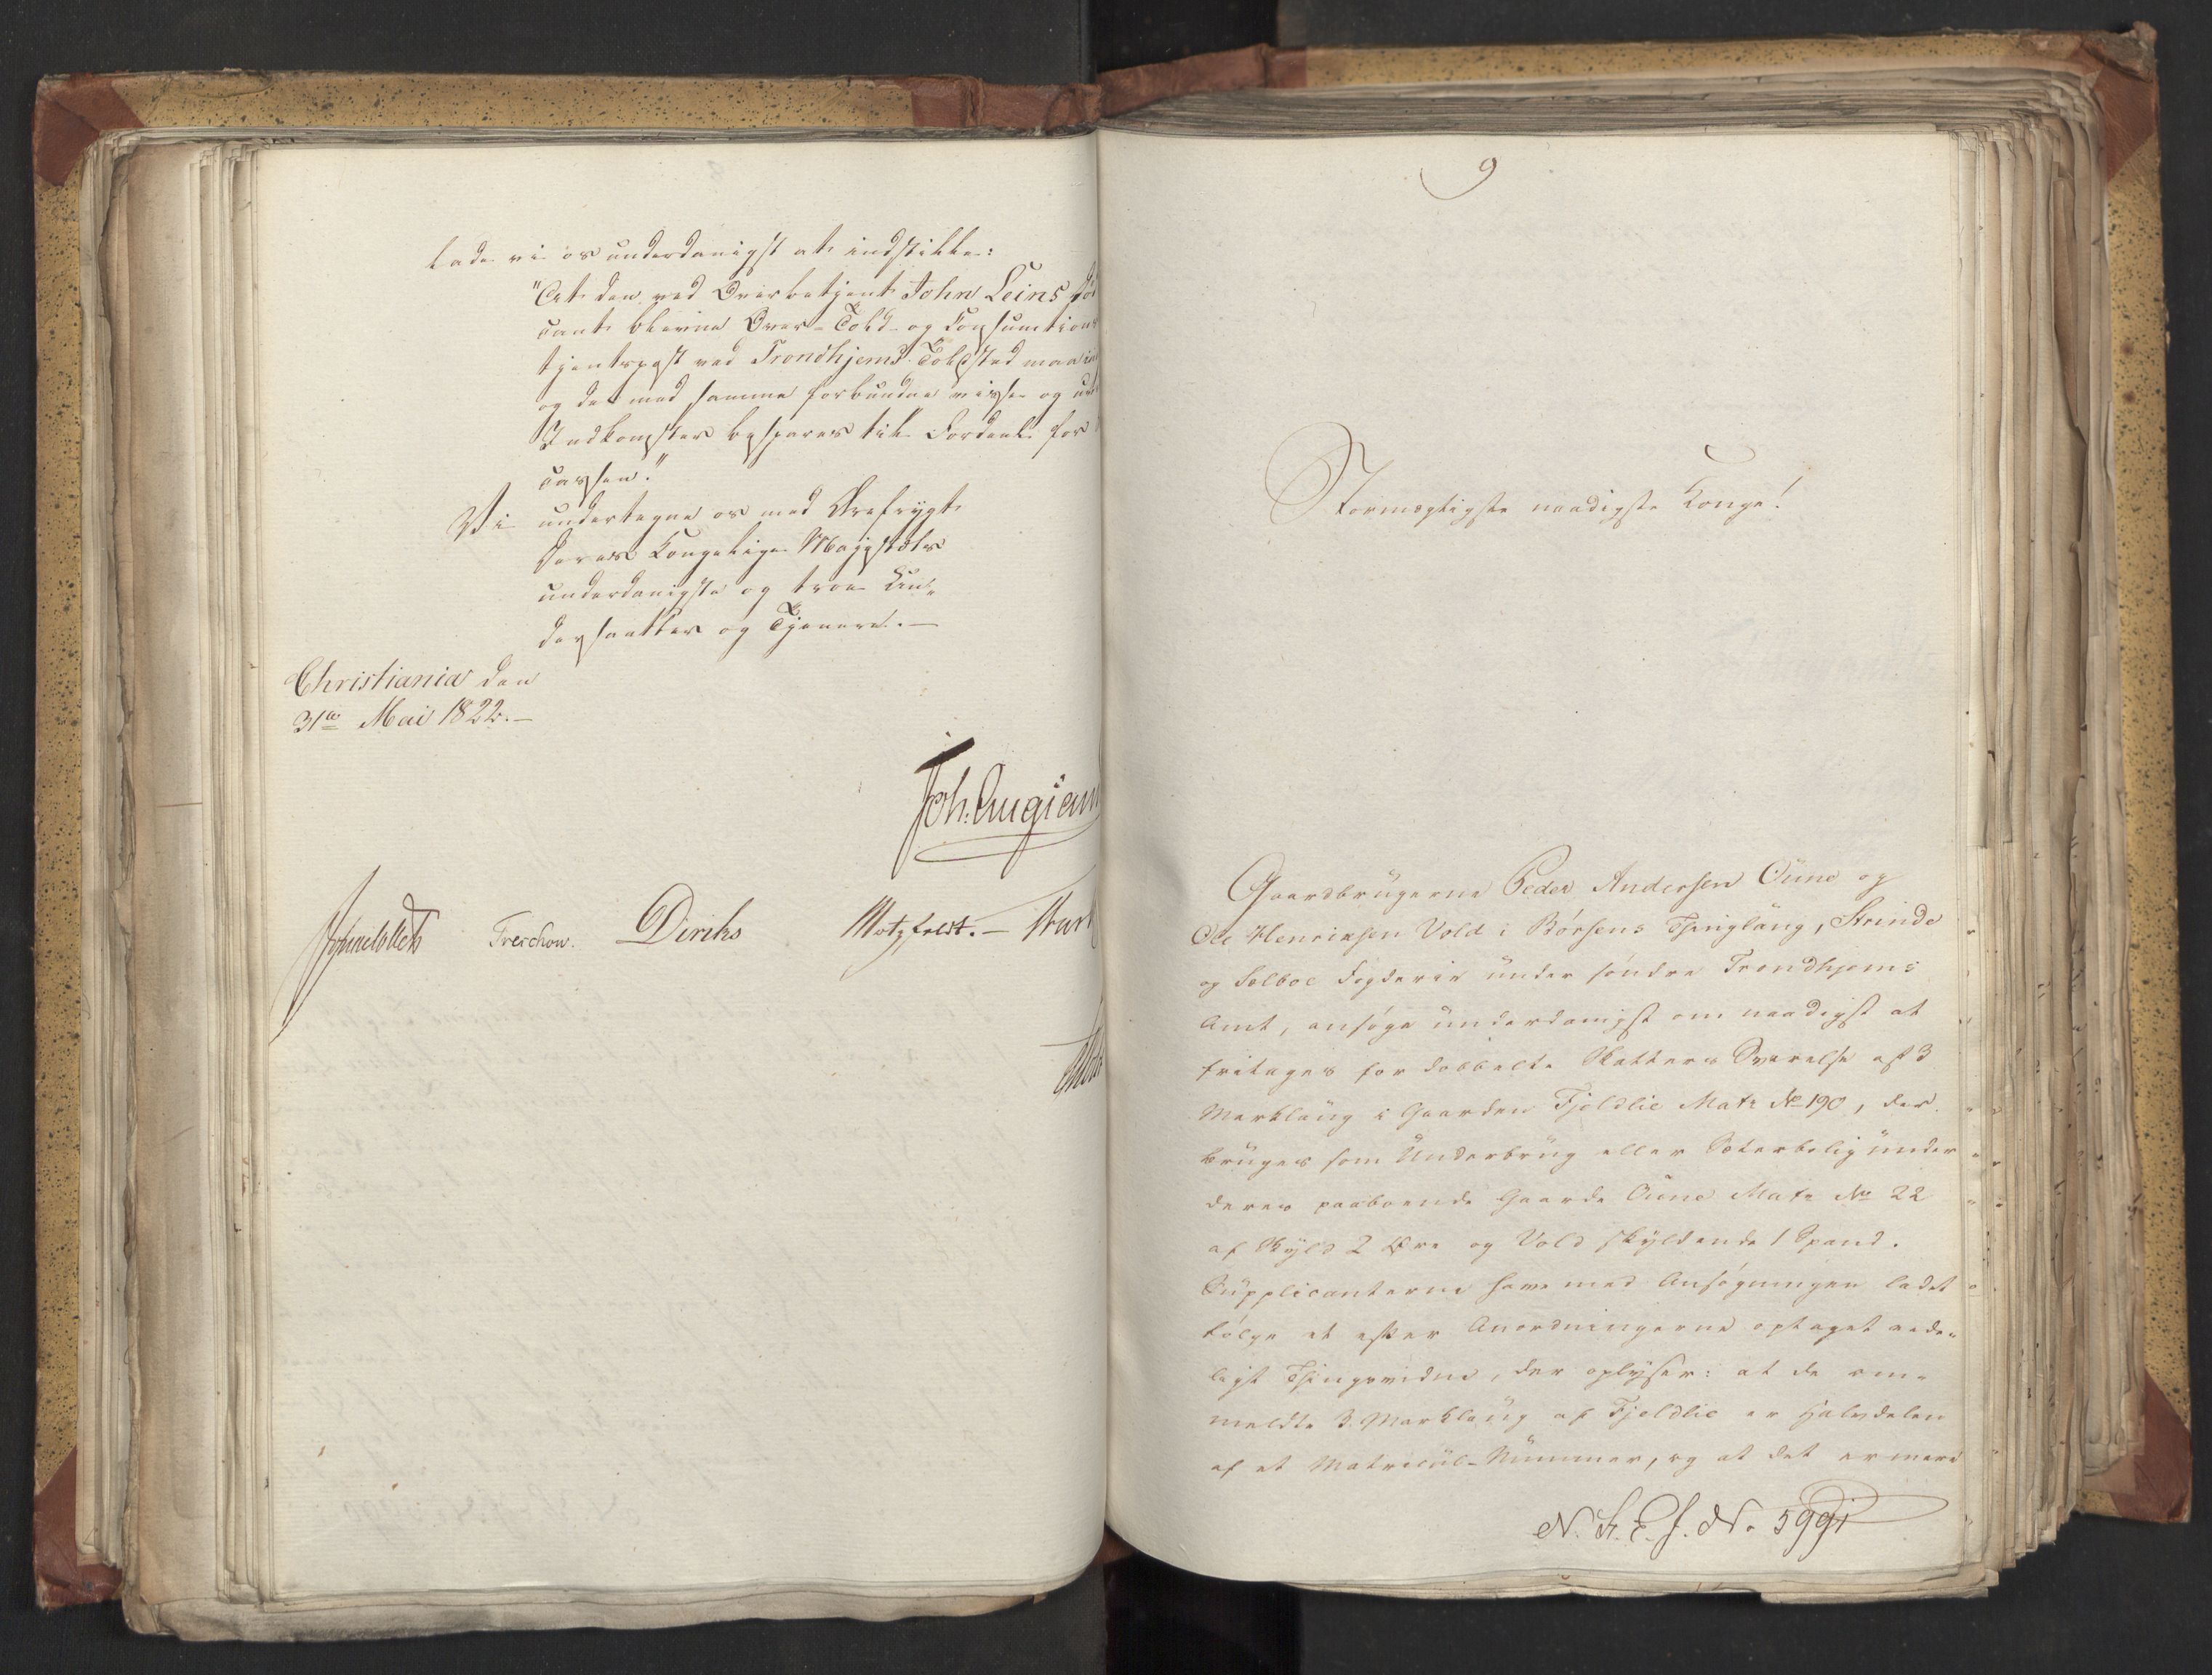 lade vi os underdanigst at indstille:
"At den ved Overbetjent John Leins
cant blevne Over-Told- og Consumtions
tjentepost ved Trondhjems Toldsted maa
og de med samme forbundne visse og
Indkomster bespares til Fordeel for
Cassen."
Vi undertegne os med Ærefrygt
Deres Kongelige Majestæts
underdanigste og troe Un„
dersaatter og Tjenere.—
Christiania den
31te Mai 1822.—
Treschow. Diriks Motzfeldt.—
9
Stormægtigste naadigste Konge!
Gaardbrugerne Peder Andersen Oune og
Ole Henriksen Vold i Børsens Thinglaug, Strinde
og Selboe Fogderie under søndre Trondhjems
Amt, ansøge underdanigst om naadigst at
fritages for dobbelte Skatters Svarelse af 3
Marklaug i Gaarden Fjeldlie Matr No 190, der
bruges som Underbrug eller Sæterbolig under
deres paaboende Gaarde Oune Matr No 22
af Skyld 2 Øre og Vold skyldende 1 Spand.
Supplicanterne have med Ansøgningen ladet
følge et efter Anordningerne optaget ede„
ligt Thingsvidne, der oplyser: at de om„
meldte 3 Marklaug af Fjeldlie er Halvdelen
af et Matricul-Nummer, og at det er mere